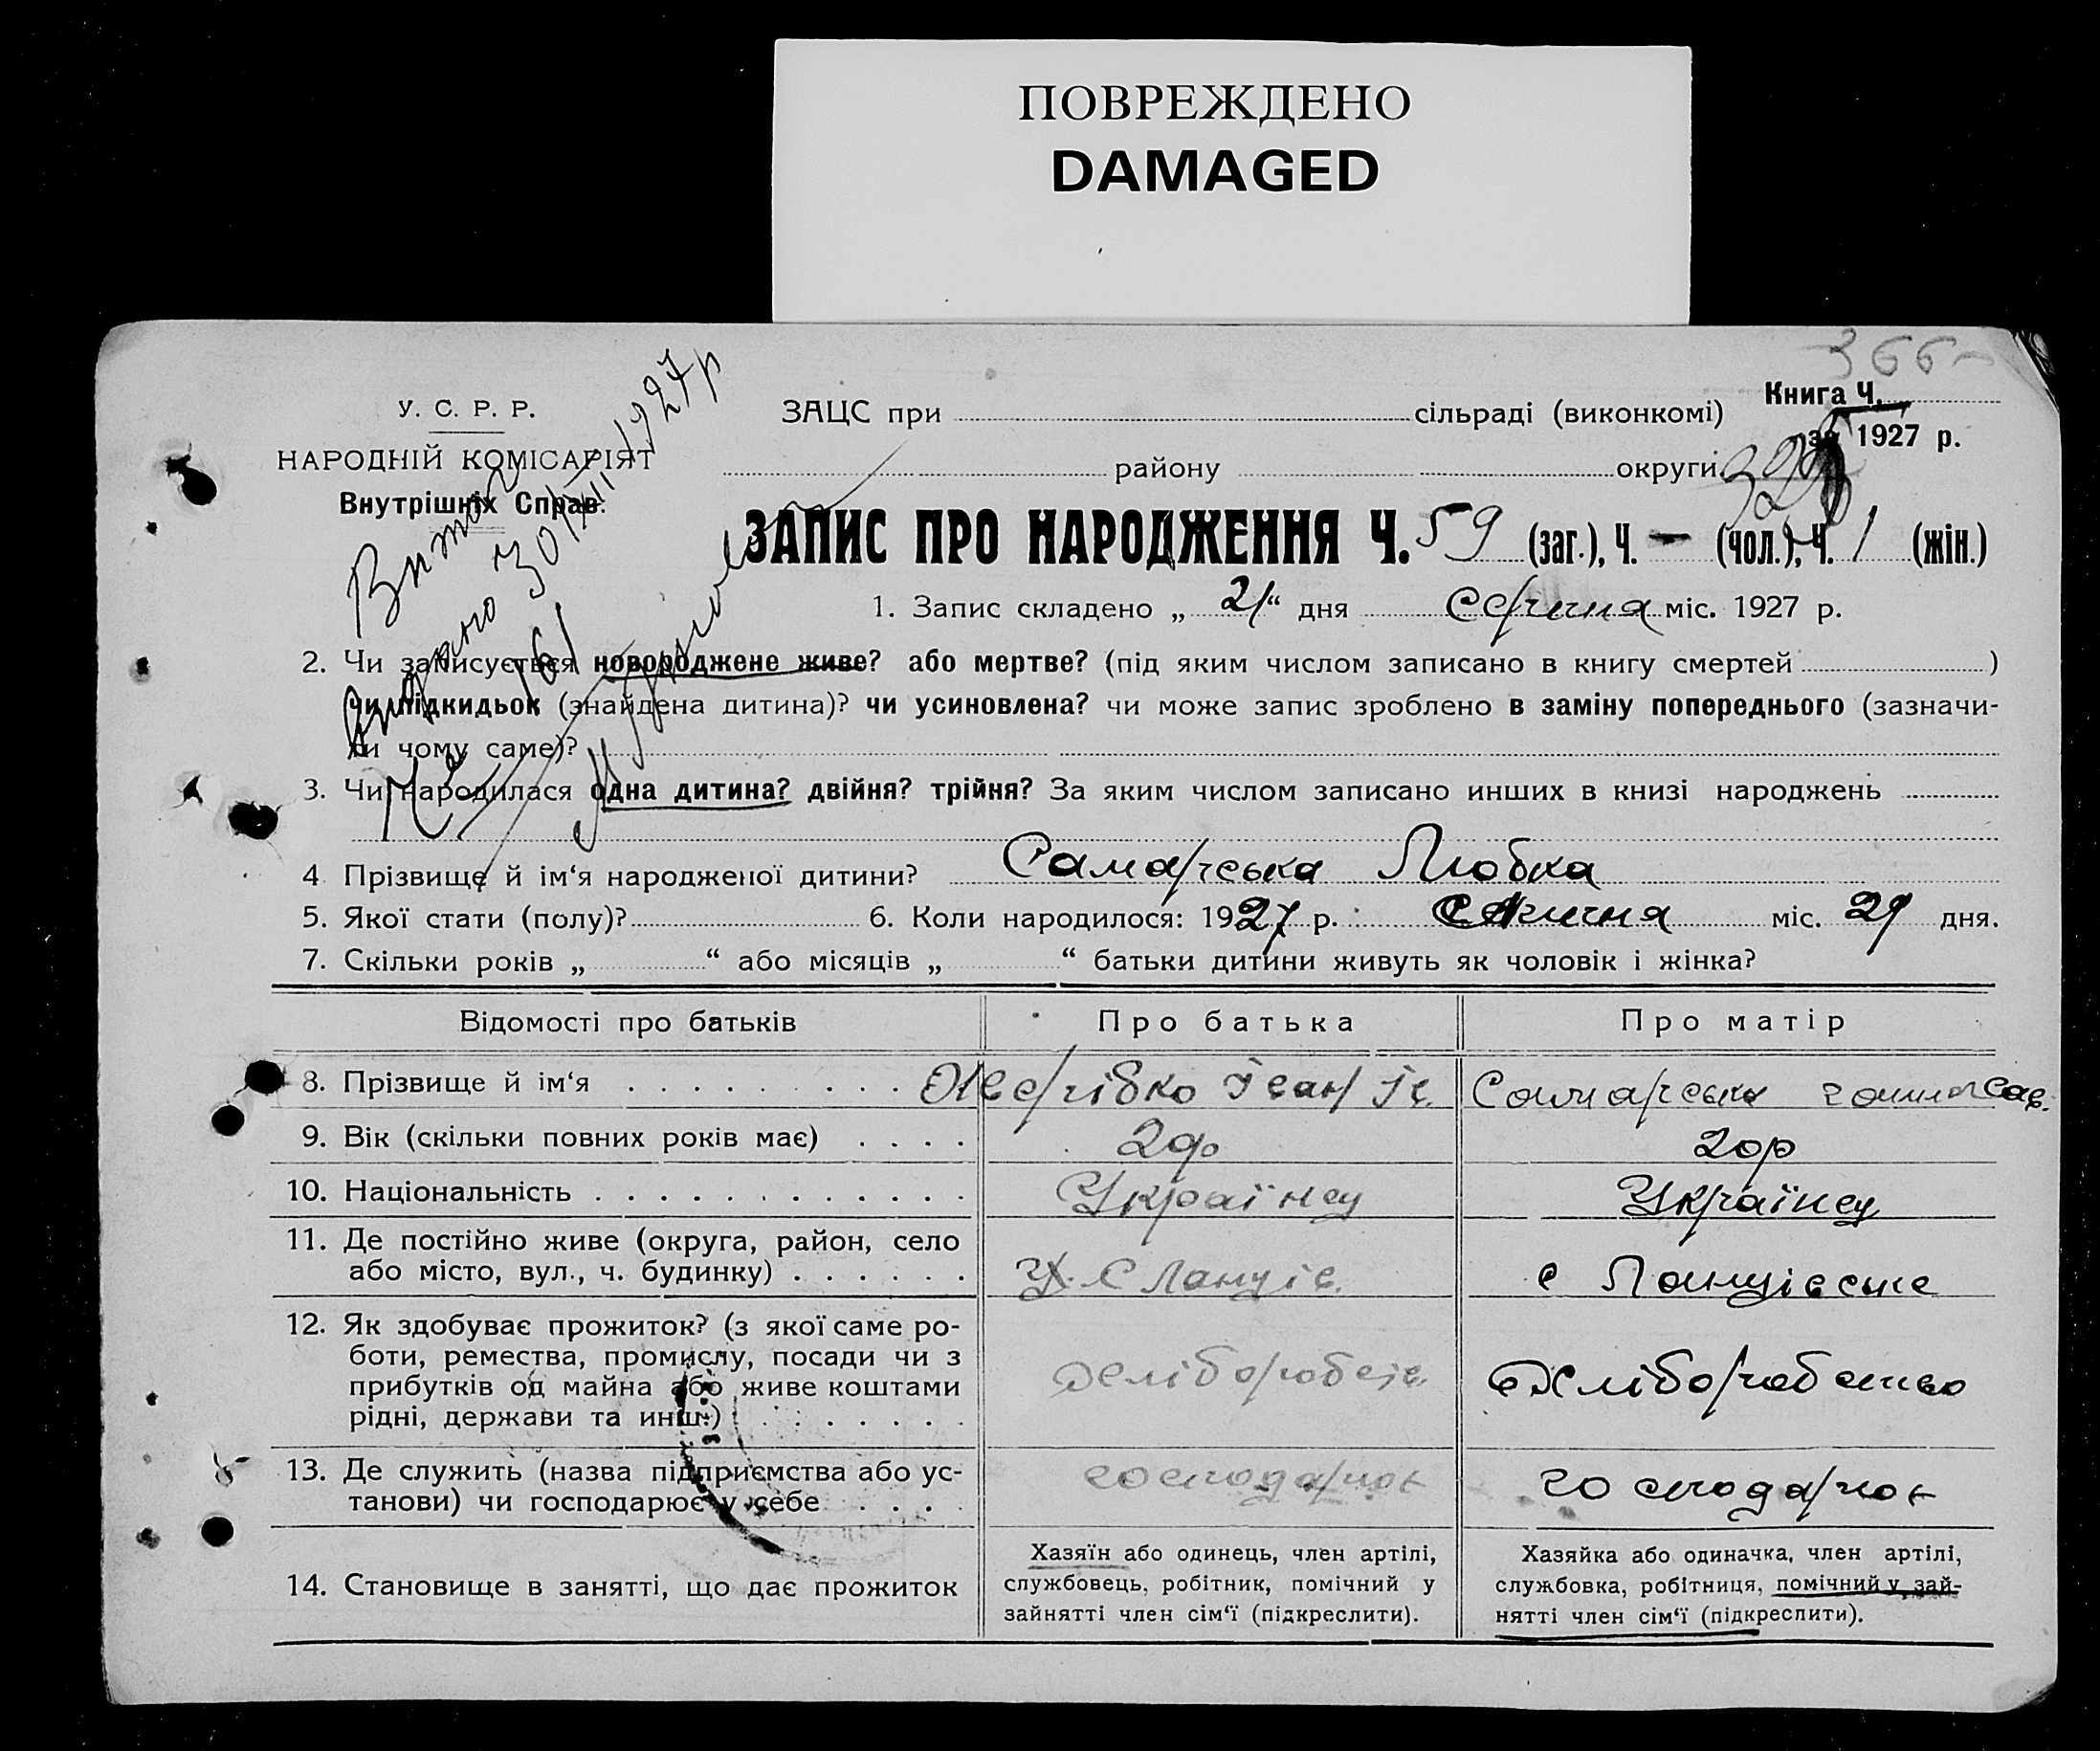 ПОВРЕЖДЕНО
DAMAGED
366
У. С. Р. Р.
НАРОДНІЙ КОМІСАРІЯТ
Внутрішніх Справ.
ЗАЦС при сільраді (виконкомі)
Книга Ч.
за 1927 р.
району округи
Витяг
видано 30/XII 1927 р
№ 161
ЗАПИС ПРО НАРОДЖЕННЯ Ч. 59 (заг.), Ч. — (чол.), Ч. 1 (жін.)
1. Запис складено „ 21 “ дня Січня міс. 1927 р.
2. Чи записується новороджене живе? або мертве? (під яким числом записано в книгу смертей )
чи підкидьок (знайдена дитина)? чи усиновлена? чи може запис зроблено в заміну попереднього (зазначи-
ти чому саме)?
3. Чи народилася одна дитина? двійня? трійня? За яким числом записано инших в книзі народжень
4 Прізвище й ім‘я народженої дитини? Самарська Любка
5. Якої стати (полу)? 6. Коли народилося: 1927 р. Січня міс. 21 дня.
7. Скільки років „ “ або місяців „ “ батьки дитини живуть як чоловік і жінка?
Відомості про батьків Про батька Про матір
8. Прізвище й ім‘я Іван Ів. Самарська Сав.
9. Вік (скільки повних років має) 20р
10. Національність Українец Українец
11. Де постійно живе (округа, район, село
або місто, вул., ч. будинку) С Ланців. с Ланцівське
12. Як здобуває прожиток? (з якої саме ро-
боти, ремества, промислу, посади чи з
прибутків од майна або живе коштами
рідні, держави та инш.) Хліборобств. Хліборобство
13. Де служить (назва підприємства або ус-
танови) чи господарює у себе господарює господарює
14. Становище в занятті, що дає прожиток
Хазяїн або одинець, член артілі,
службовець, робітник, помічний у
зайнятті член сім‘ї (підкреслити).
Хазяйка або одиначка, член артілі,
службовка, робітниця, помічний у зай-
нятті член сім‘ї (підкреслити).